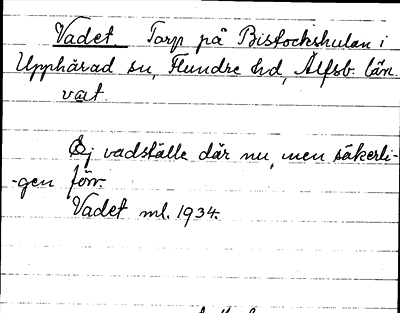 Vadet Torp på Bistockskulan i
Upphärad sn, Flundre hd, Älfsb. län.
vat.
Ej vadställe där nu, men säkerli-
-gen förr.
Vadet ml. 1934.